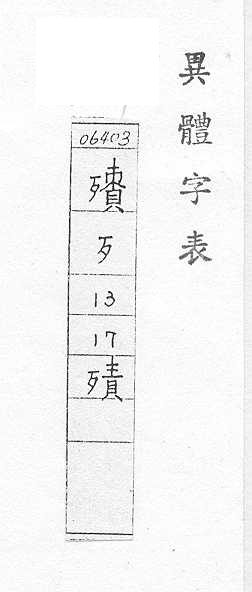 異體字表
06403
歹
13
17